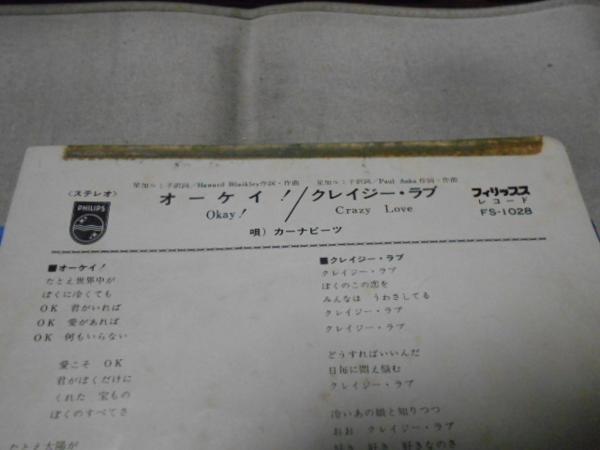 星加ルミ子訳詞/Howard Blaikley作詞・作曲 星加ルミ子訳詞/Paul Anka作詞・作曲
〈ステレオ〉 オーケイ!/クレイジー・ラブ フィリップス
Okay! Crazy Love レコード
PHILIPS FS-1028
唄) カーナビーツ
■オーケイ!
たとえ世界中が
ぼくに冷くても
OK 君がいれば
OK 愛があれば
OK 何もいらない
愛こそ OK
君がぼくだけに
くれた 宝もの
ぼくのすべてさ
たとえ太陽が
■クレイジー・ラブ
クレイジー・ラブ
ぼくのこの恋を
みんなは うわさしてる
クレイジー・ラブ
クレイジー・ラブ
どうすればいいんだ
日毎に悶え悩む
クレイジー・ラブ
冷いあの娘と知りつつ
おお クレイジー・ラブ
好き 好き 好きなのさ